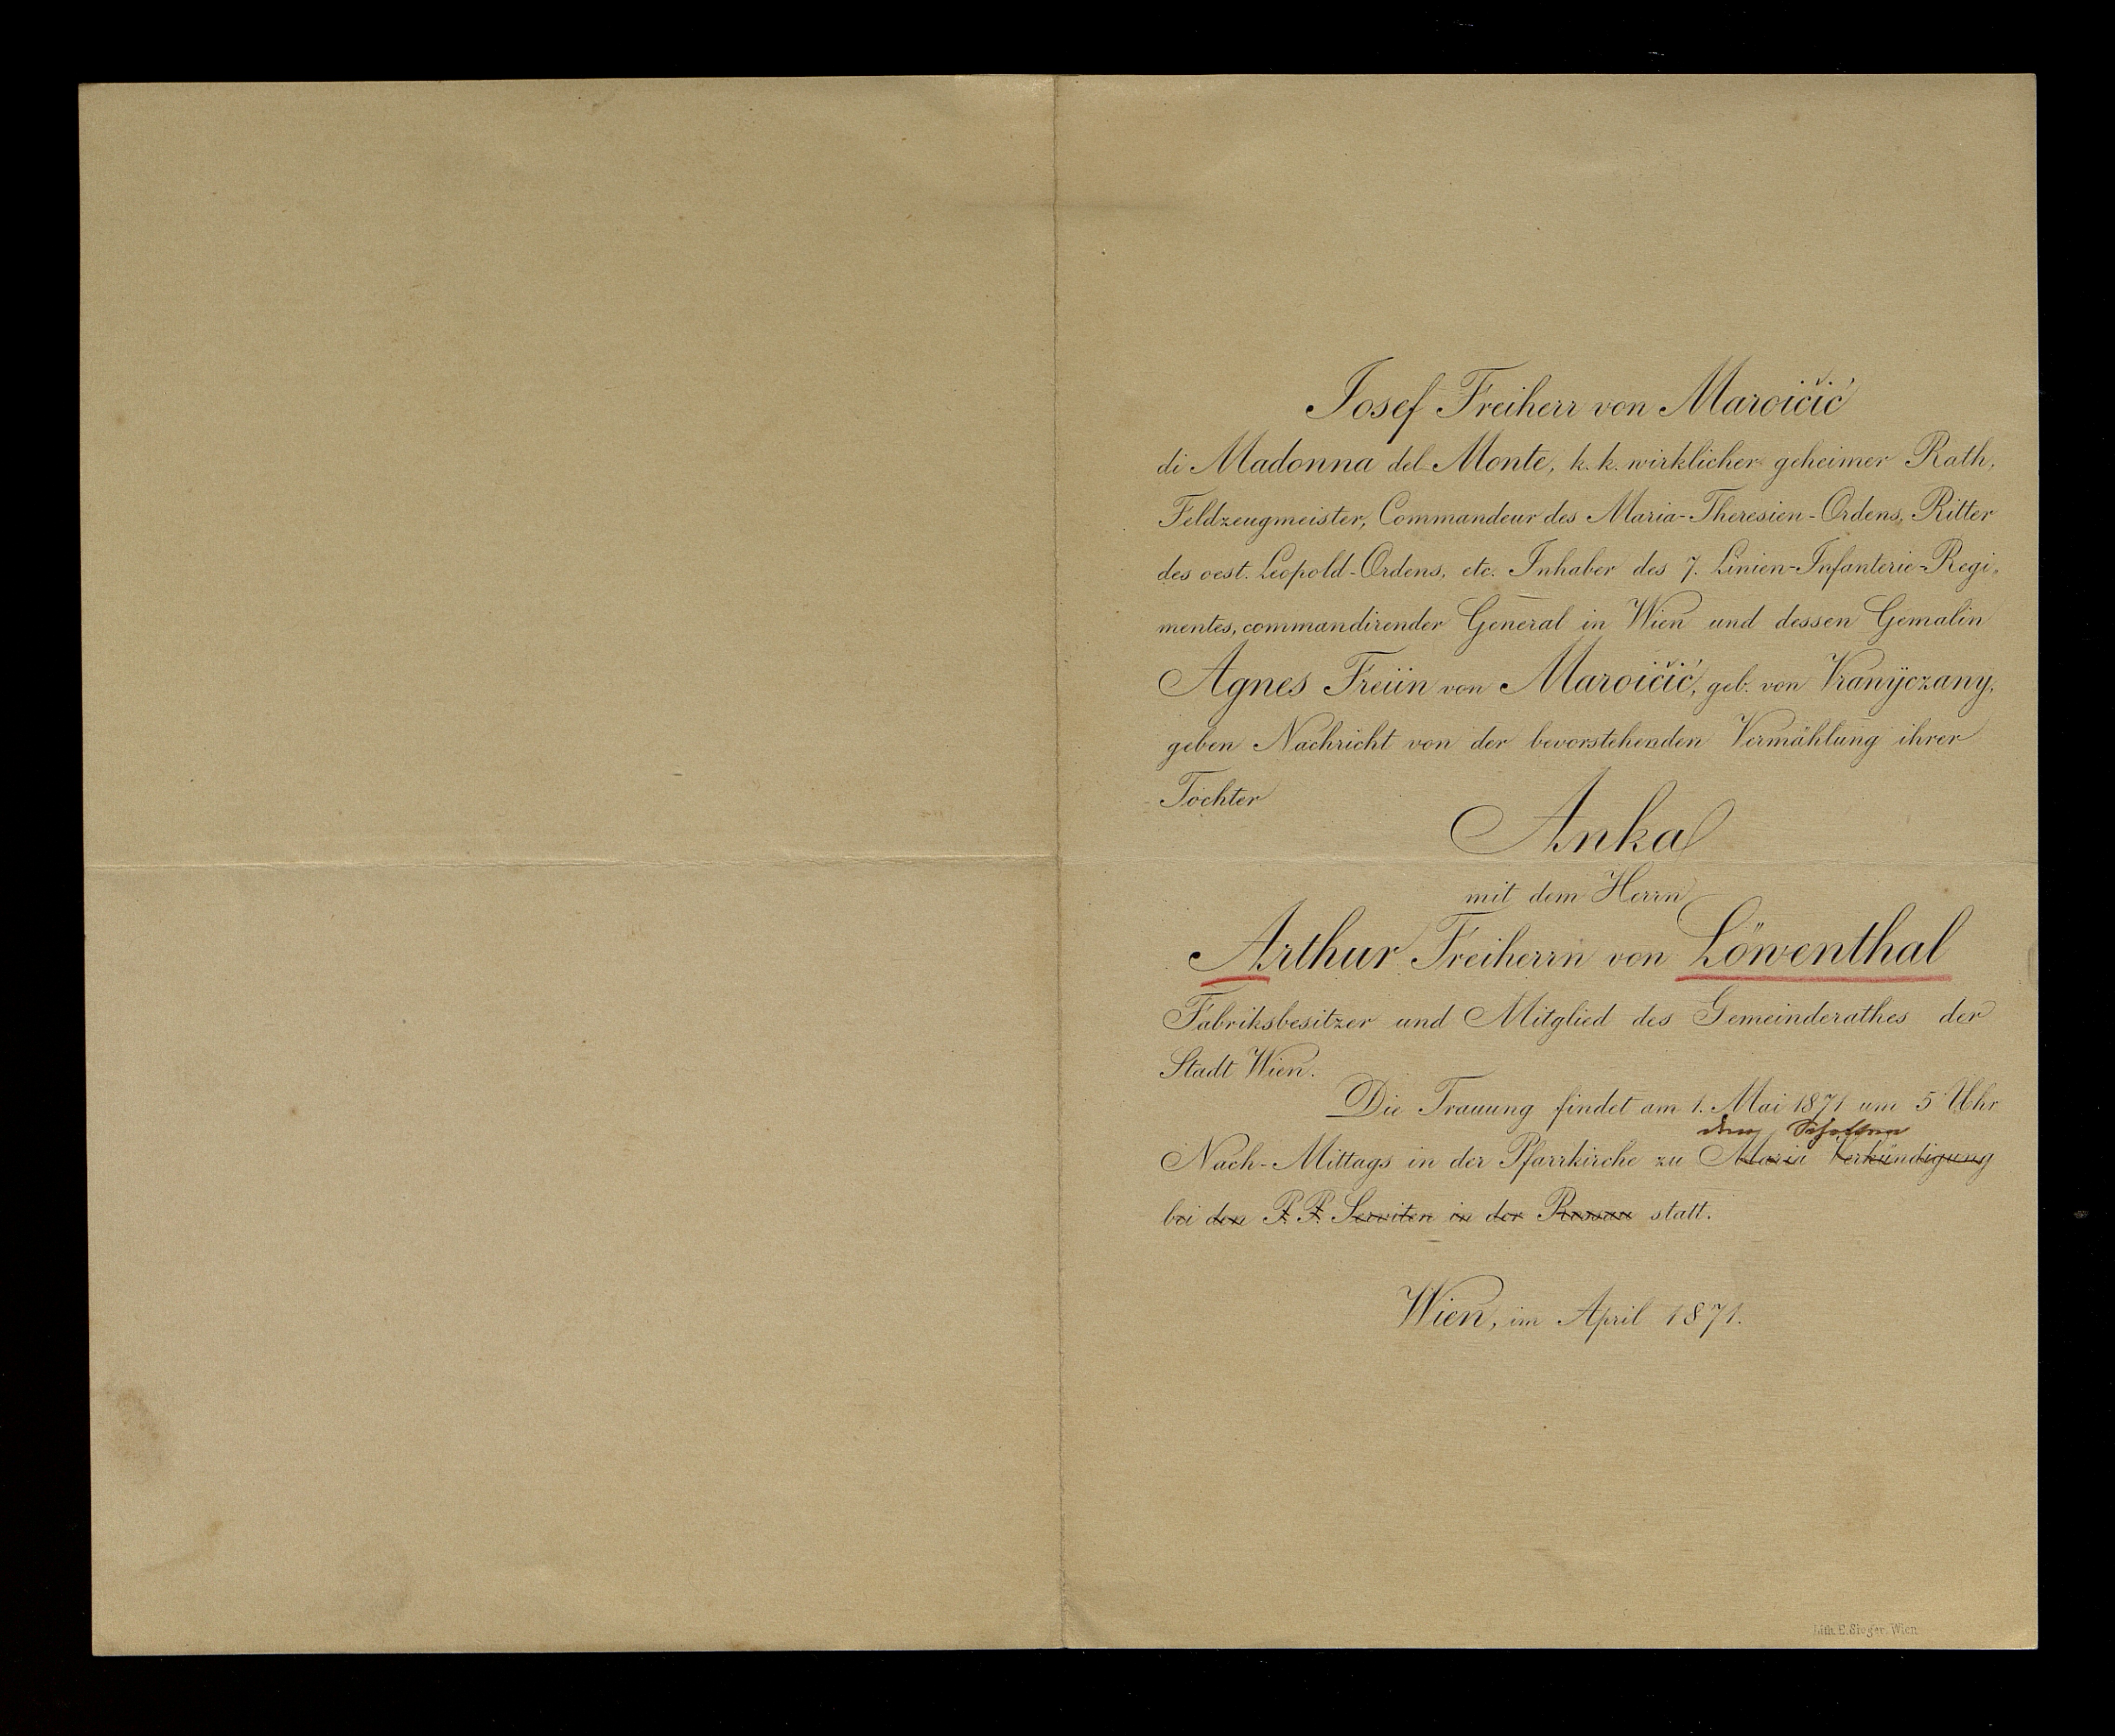 Josef Freiherr von Maroičić
di Madonna del Monte, k. k. wirklicher geheimer Rath,
Feldzeugmeister, Commandeur des Maria-Theresien-Ordens, Ritter
des oest. Leopold-Ordens, etc. Inhaber des 7. Linien-Infanterie-Regi-
mentes, commandirender General in Wien und dessen Gemalin
Agnes Freiin von Maroičić, geb. von Vranÿczany,
geben Nachricht von der bevorstehenden Vermählung ihrer
Tochter
Anka
mit dem Herrn
Arthur Freiherrn von Löwenthal
Fabriksbesitzer und Mitglied des Gemeinderathes der
Stadt Wien.
Die Trauung findet am 1. Mai 1871 um 5 Uhr
den Schotten
Nach-Mittags in der Pfarrkirche zu Maria Verkündigung
bei den P. P. Serviten in der Rossau statt.
Wien, im April 1871.
Lith. E. Sieger, Wien